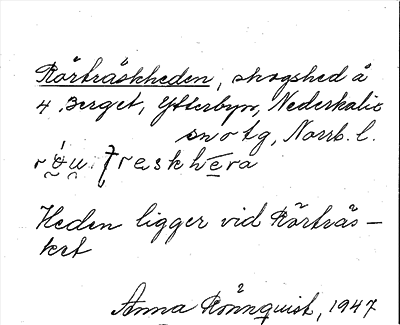 Rörträskheden, skogshed å
4. Berget, Ytterbyn, Nederkalix
sn o tg, Norrb. l.
Heden ligger vid Rörträs–
ket
Anna Rönnquist, 1947